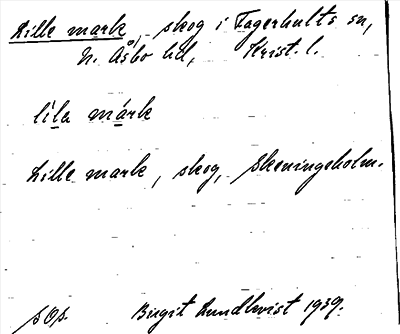 Lille mark, skog i Fagerhults sn,
N. Åsbo hd, Krist. l.
líla márk
Lille mark, skog, Skeningeholm.
sOp. Birgit Lundkvist 1939.